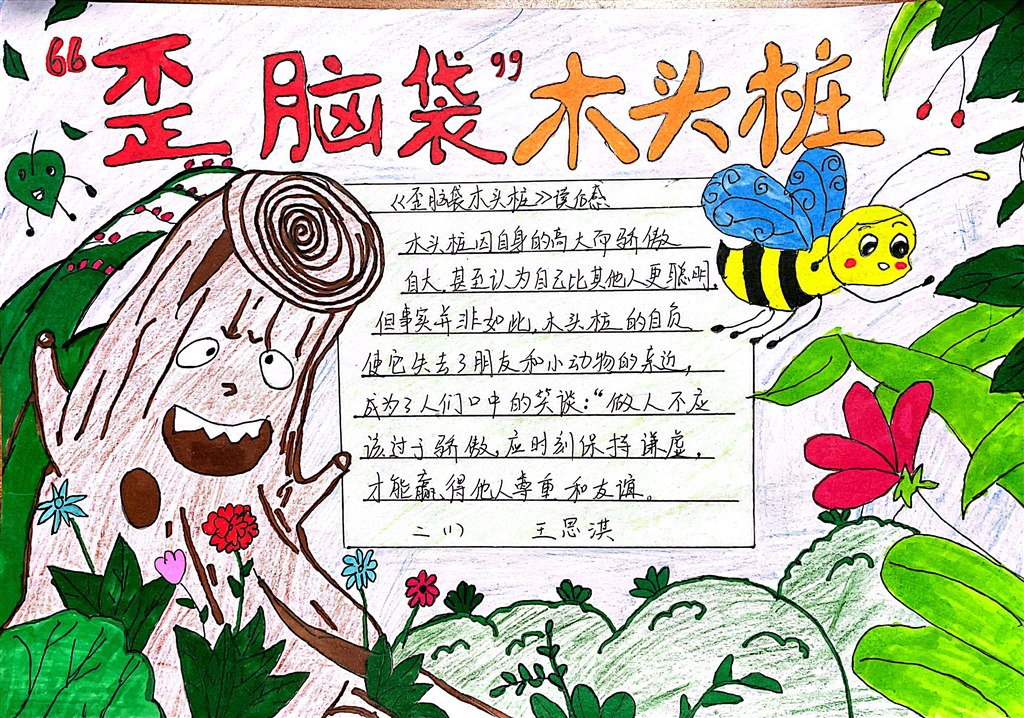 “歪脑袋”木头桩
《歪脑袋木头桩》读后感
木头桩因自身的高大而骄傲
自大,甚至认为自己比其他人更聪明,
但事实并非如此,木头桩的自负
使它失去了朋友和小动物的亲近,
成为了人们口中的笑谈:“做人不应
该过于骄傲,应时刻保持谦虚,
才能赢得他人尊重和友谊。
二(1) 王思淇